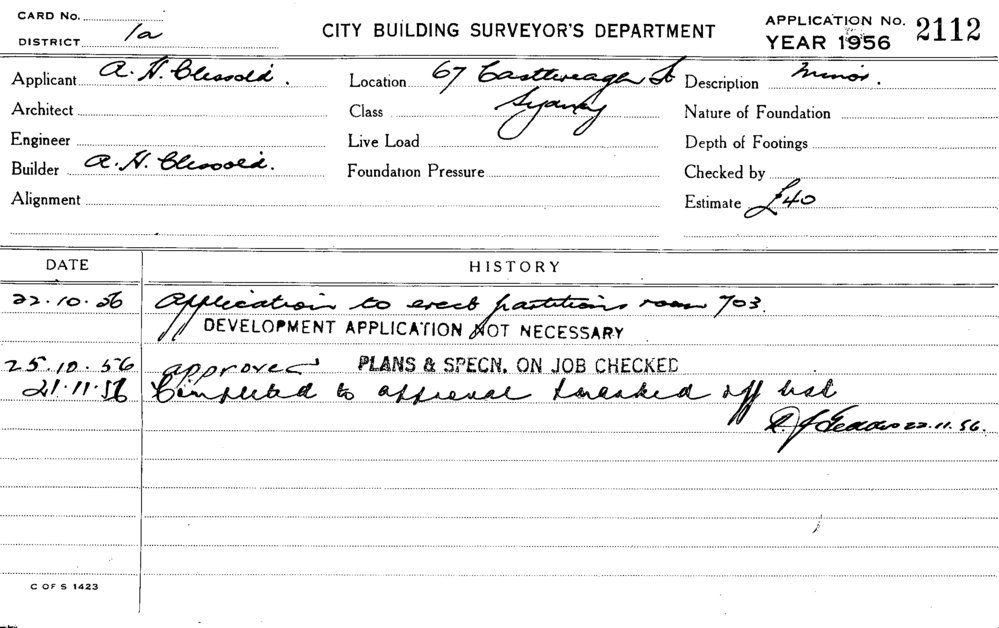 CARD No.
DISTRICT 1a
CITY BUILDING SURVEYOR'S DEPARTMENT
APPLICATION No. 2112
YEAR 1956
Applicant A. H. Clissold.
Location 67 Castlereagh St
Description Minor.
Architect
Class Sydney
Nature of Foundation
Engineer
Live Load
Depth of Footings
Builder A. H. Clissold.
Foundation Pressure
Checked by
Alignment
Estimate £40
DATE HISTORY
22.10.56 Application to erect partitions room 703.
DEVELOPMENT APPLICATION NOT NECESSARY
25.10.56 approved PLANS & SPECN. ON JOB CHECKED
21.11.56 Completed to approval & marked off list
22.11.56.
C OF S 1423